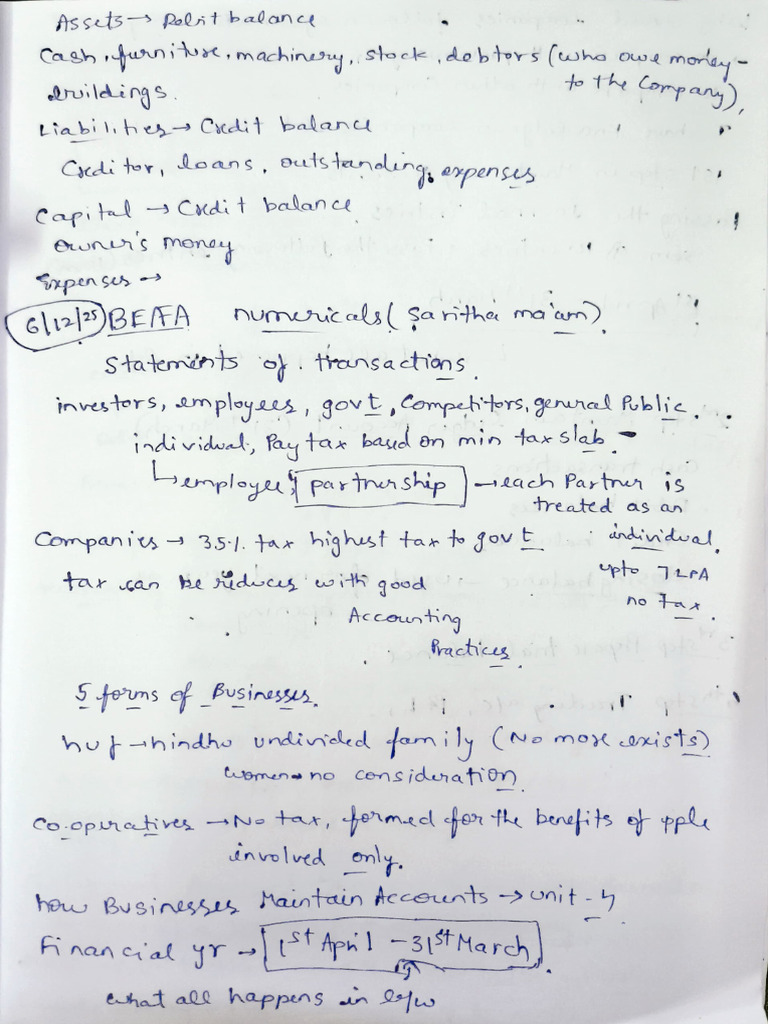 Assets → Debit balance
Cash, furniture, machinery, stock, debtors (who owe money
to the Company),
buildings.
Liabilities → Credit balance
Creditor, loans, outstanding expenses
Capital → Credit balance
Owner's money
Expenses →
6/12/25 BEFA numericals (Saritha ma'am).
Statements of transactions.
investors, employees, govt, Competitors, general Public.
individual, Pay tax based on min tax slab.
↳ employee, partnership → each Partner is
treated as an
Companies → 35% tax highest tax to govt individual.
upto 7 LPA
tax can be reduces with good
no tax.
Accounting
Practices.
5 forms of Businesses.
huf → hindhu undivided family (No more exists)
women → no consideration.
Co-operatives → No tax, formed for the benefits of pple
involved only.
how Businesses Maintain Accounts → unit - 4
Financial yr → 1st April - 31st March.
what all happens in b/w